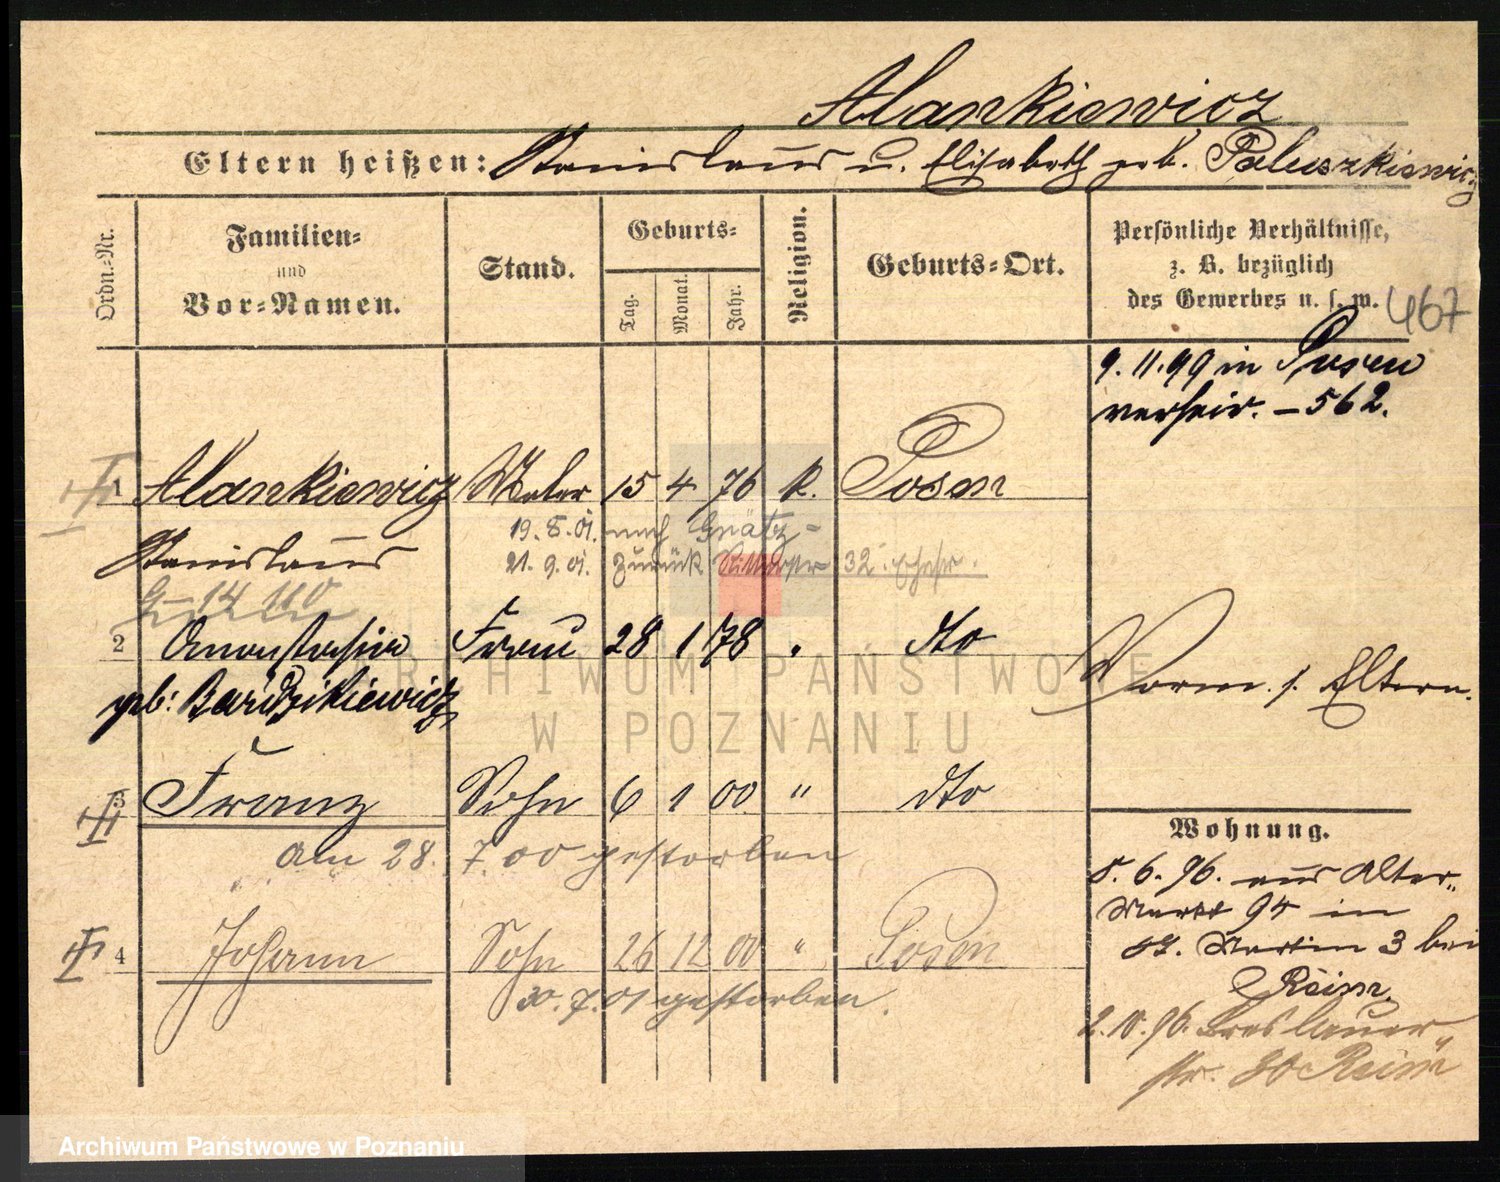 Alankiewicz
Eltern heißen: Stanislaus u. Elisabeth geb. Paluszkiewicz
Ordn.-Nr.
Familien-
und
Vor-Namen.
Stand.
Geburts-
Tag.
Monat.
Jahr.
Religion.
Geburts-Ort.
Persönliche Verhältnisse,
z. B. bezüglich
des Gewerbes u. s. w.
467
9.11.99 in Posen
verheir. – 562.
1 Alankiewicz Maler 15 4 76 k. Posen
19.8.01. nach Grätz -
Stanislaus
21.9.01. zurück 32.
G – 14 110
2 Anastasia Frau 28 1 78 " dto
geb: Bardzikiewicz
Vorm. s. Eltern.
3 Franz Sohn 6 1 00 " dto
am 28. 7. 00 gestorben
4 Johann Sohn 26 12 00 " Posen
30.7.01 gestorben.
Wohnung.
5.6.96. aus Alter-
Markt 94 in
St. Martin 3 bei
2.10.96. Breslauer
str. 30
ARCHIWUM PAŃSTWOWE
W POZNANIU
Archiwum Państwowe w Poznaniu